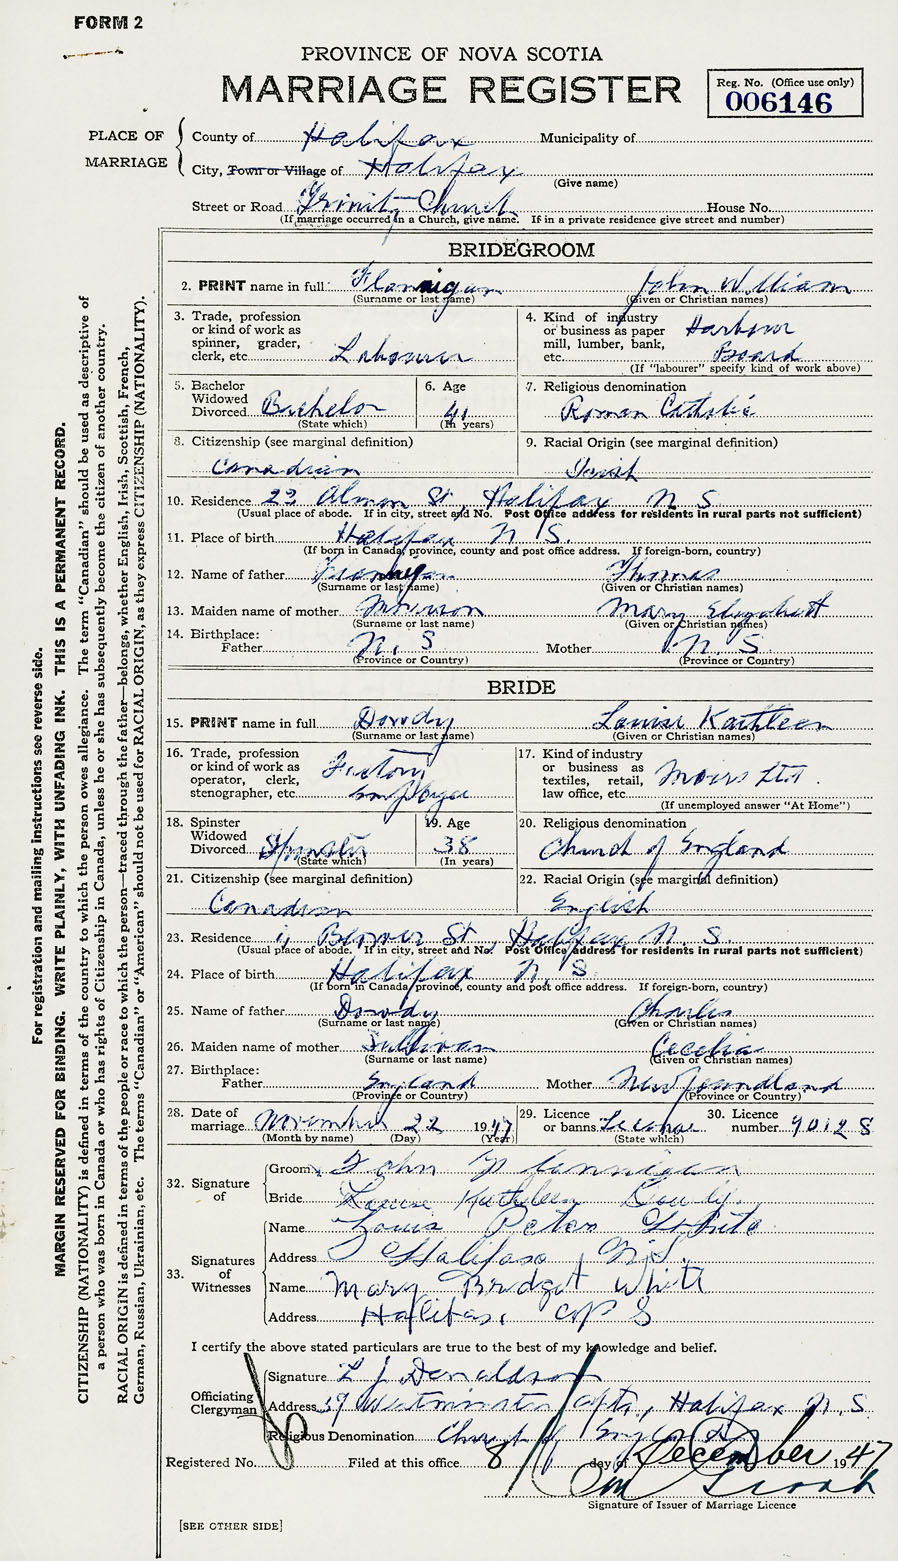 FORM 2
PROVINCE OF NOVA SCOTIA
MARRIAGE REGISTER
Reg. No. (Office use only)
006146
PLACE OF MARRIAGE
County of Halifax Municipality of
City, Town or Village of Halifax
(Give name)
Street or Road Trinity Church House No.
(If marriage occurred in a Church, give name. If in a private residence give street and number)
BRIDEGROOM
2. PRINT name in full: Flannigan John William
(Surname or last name) (Given or Christian names)
3. Trade, profession or kind of work as spinner, grader, clerk, etc. Labourer
4. Kind of industry or business as paper mill, lumber, bank, etc. Harbour Board
(If "labourer" specify kind of work above)
5. Bachelor Widowed Divorced Bachelor
(State which)
6. Age 41
(In years)
7. Religious denomination
Roman Catholic
8. Citizenship (see marginal definition)
Canadian
9. Racial Origin (see marginal definition)
Irish
10. Residence 22 Almon St, Halifax N S
(Usual place of abode. If in city, street and No. Post Office address for residents in rural parts not sufficient)
11. Place of birth Halifax N S.
(If born in Canada, province, county and post office address. If foreign-born, country)
12. Name of father Flannigan Thomas
(Surname or last name) (Given or Christian names)
13. Maiden name of mother Mary Elizabeth
(Surname or last name) (Given or Christian names)
14. Birthplace:
Father N. S Mother N. S
(Province or Country) (Province or Country)
BRIDE
15. PRINT name in full Dowdy Louise Kathleen
(Surname or last name) (Given or Christian names)
16. Trade, profession or kind of work as operator, clerk, stenographer, etc. Factory Employee
17. Kind of industry or business as textiles, retail, law office, etc. Moirs Ltd.
(If unemployed answer "At Home")
18. Spinster Widowed Divorced Spinster
(State which)
19. Age 38
(In years)
20. Religious denomination
Church of England
21. Citizenship (see marginal definition)
Canadian
22. Racial Origin (see marginal definition)
English
23. Residence St, Halifax N S
(Usual place of abode. If in city, street and No. Post Office address for residents in rural parts not sufficient)
24. Place of birth Halifax N S
(If born in Canada, province, county and post office address. If foreign-born, country)
25. Name of father Dowdy Charles
(Surname or last name) (Given or Christian names)
26. Maiden name of mother Sullivan Cecelia
(Surname or last name) (Given or Christian names)
27. Birthplace:
Father England Mother Newfoundland
(Province or Country) (Province or Country)
28. Date of marriage November 22 1947
(Month by name) (Day) (Year)
29. Licence or banns License
(State which)
30. Licence number 90128
32. Signature of
Groom John Flannigan
Bride Louise Kathleen Dowdy.
33. Signatures of Witnesses
Name Louis Peter White
Address Halifax N.S.
Name Mary Bridget White
Address Halifax, S
I certify the above stated particulars are true to the best of my knowledge and belief.
Officiating Clergyman
Signature L J Donaldson
Address 39 Westminster Apts., Halifax N.S.
Religious Denomination Church of England
Registered No. Filed at this office 8 day of December 1947
Signature of Issuer of Marriage Licence
[SEE OTHER SIDE]
For registration and mailing instructions see reverse side.
MARGIN RESERVED FOR BINDING. WRITE PLAINLY, WITH UNFADING INK. THIS IS A PERMANENT RECORD.
CITIZENSHIP (NATIONALITY) is defined in terms of the country to which the person owes allegiance. The term "Canadian" should be used as descriptive of
a person who was born in Canada or who has rights of Citizenship in Canada, unless he or she has subsequently become the citizen of another country.
RACIAL ORIGIN is defined in terms of the people or race to which the person—traced through the father—belongs, whether English, Irish, Scottish, French,
German, Russian, Ukrainian, etc. The terms "Canadian" or "American" should not be used for RACIAL ORIGIN, as they express CITIZENSHIP (NATIONALITY).